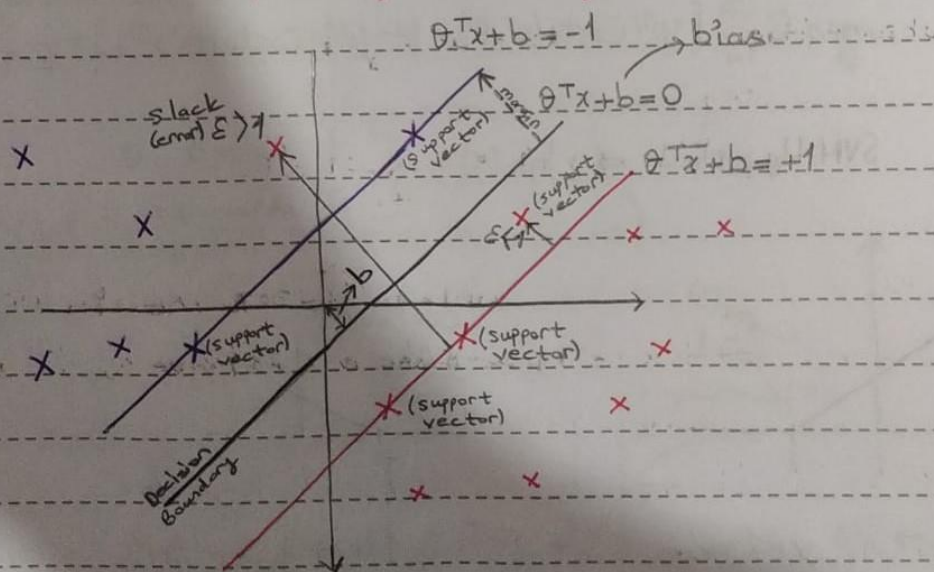 θᵀx+b=-1
bias
θᵀx+b=0
margin
slack
(error) ε>1
(support
vector)
θᵀx+b=+1
(support
vector)
ε<1
b
(support
vector)
(support
vector)
(support
vector)
Decision
Boundary